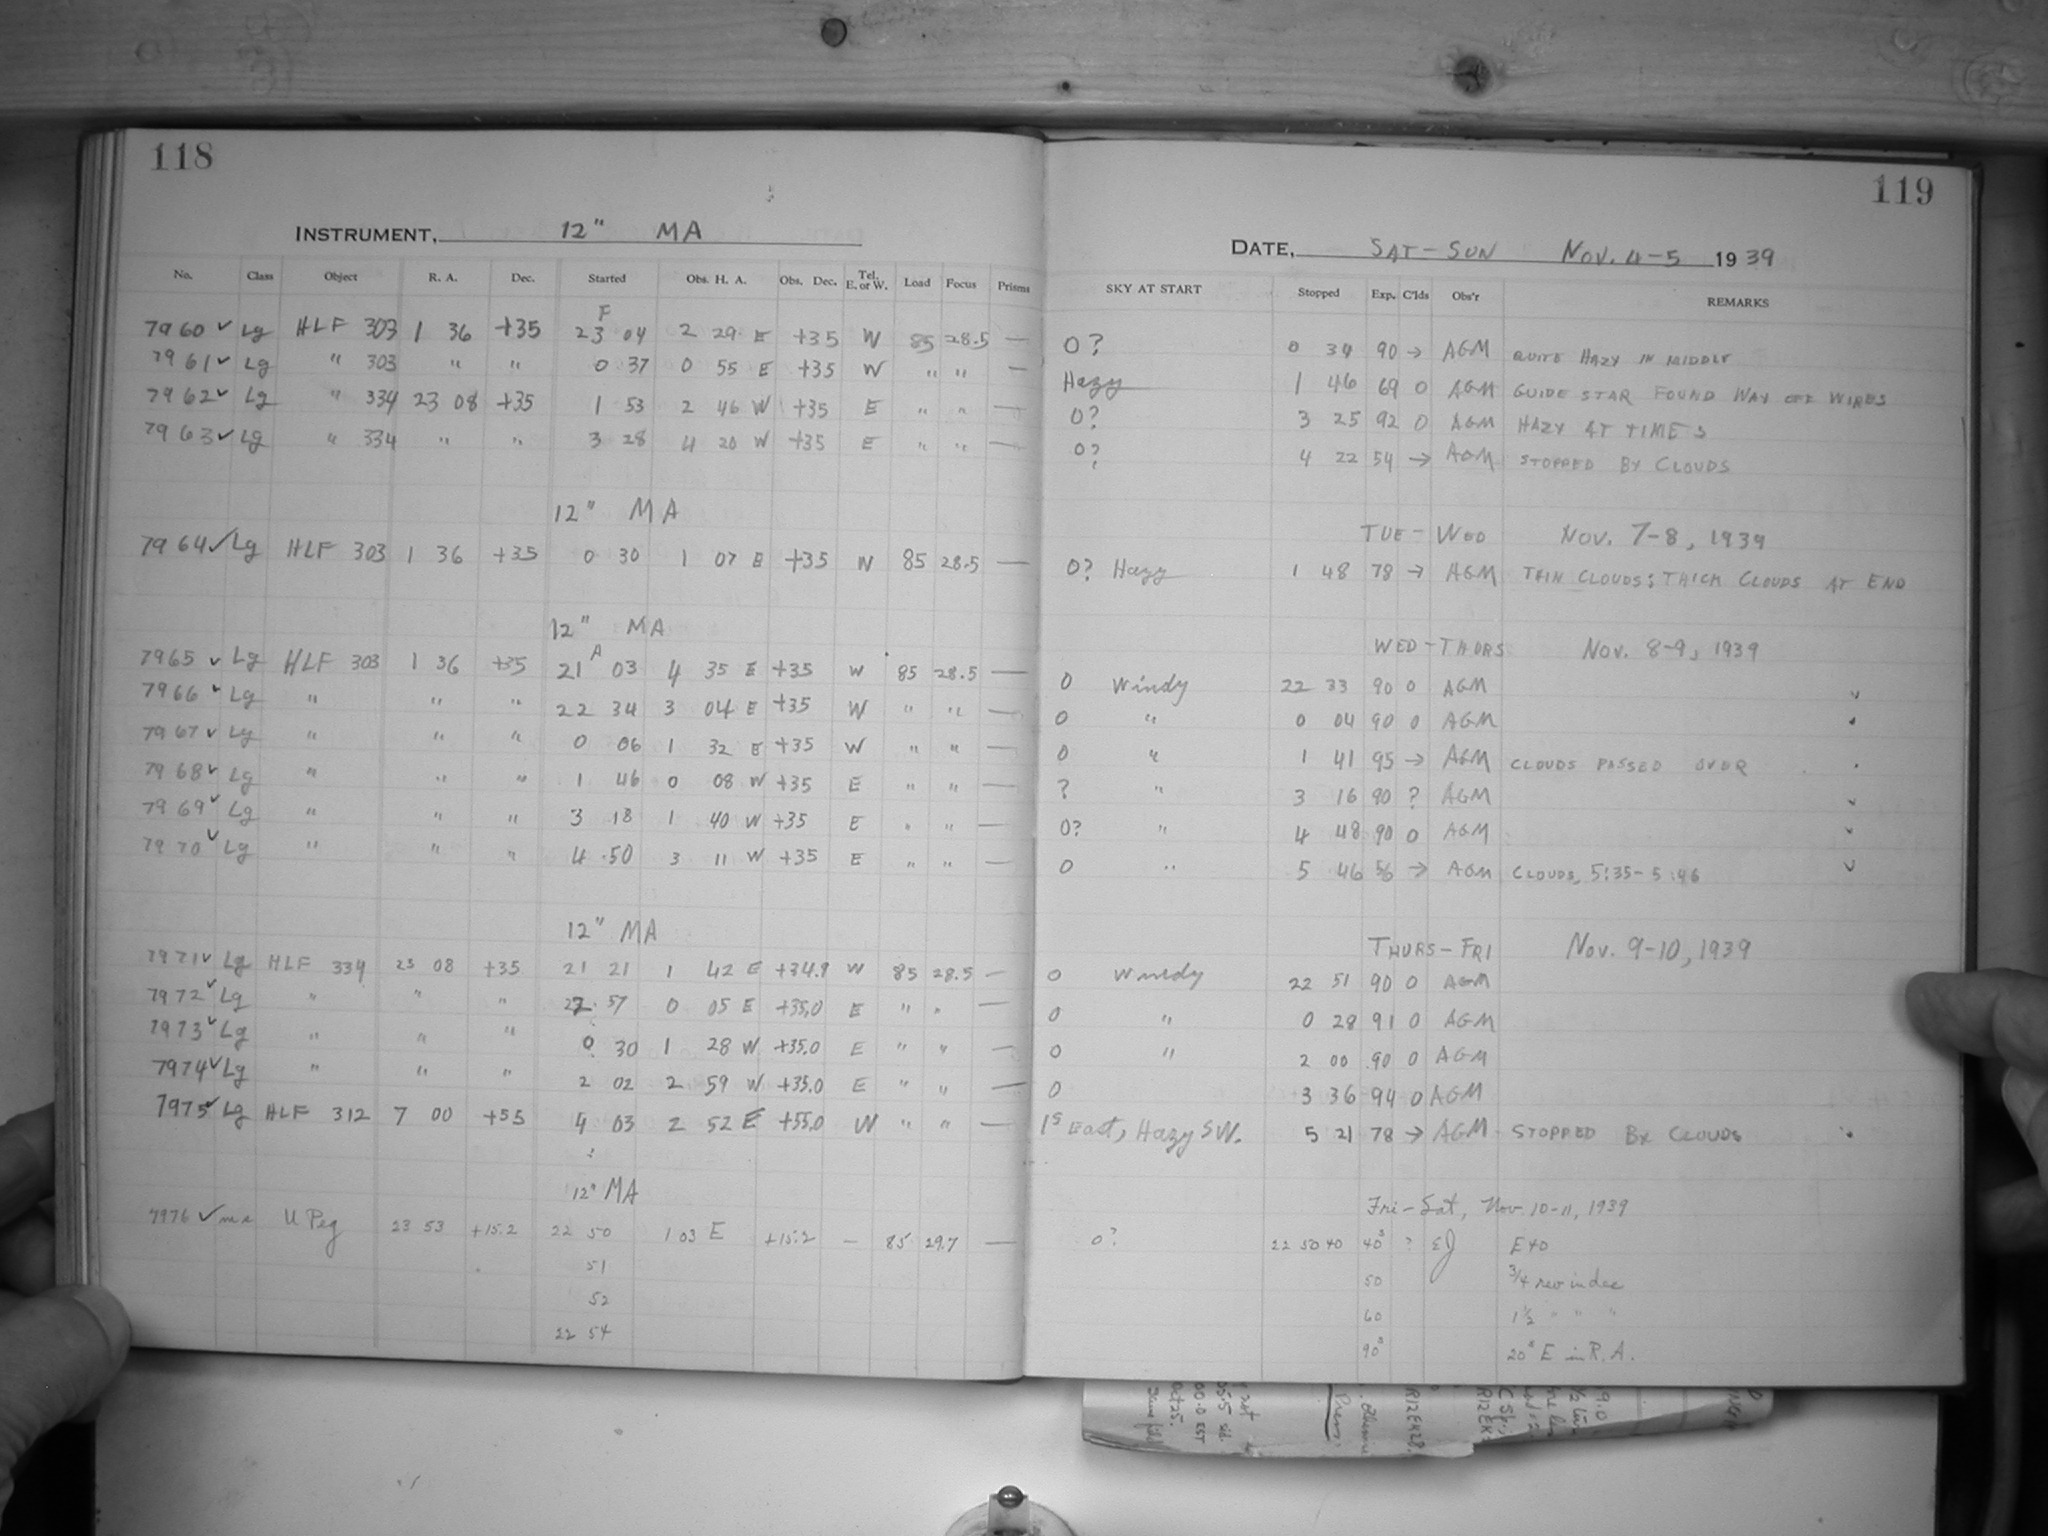 118
INSTRUMENT, 12" MA
No. Class Object R. A. Dec. Started Obs. H. A. Obs. Dec. Tel. E. or W. Load Focus Prisms
F
7960 ✓ Lg HLF 303 1 36 +35 23 04 2 29 E +35 W 85 28.5 —
7961 ✓ Lg " 303 " " 0 37 0 55 E +35 W " " —
7962 ✓ Lg " 334 23 08 +35 1 53 2 46 W +35 E " " —
7963 ✓ Lg " 334 " " 3 28 4 20 W +35 E " " —
12" MA
7964 ✓ Lg HLF 303 1 36 +35 0 30 1 07 E +35 W 85 28.5 —
12" MA
A
7965 ✓ Lg HLF 303 1 36 +35 21 03 4 35 E +35 W 85 28.5 —
7966 ✓ Lg " " " 22 34 3 04 E +35 W " " —
7967 ✓ Lg " " " 0 06 1 32 E +35 W " " —
7968 ✓ Lg " " " 1 46 0 08 W +35 E " " —
7969 ✓ Lg " " " 3 18 1 40 W +35 E " " —
7970 ✓ Lg " " " 4 50 3 11 W +35 E " " —
12" MA
7971 ✓ Lg HLF 334 23 08 +35 21 21 1 42 E +34.9 W 85 28.5 —
7972 ✓ Lg " " " 22 57 0 05 E +35.0 E " " —
7973 ✓ Lg " " " 0 30 1 28 W +35.0 E " " —
7974 ✓ Lg " " " 2 02 2 59 W +35.0 E " " —
7975 ✓ Lg HLF 312 7 00 +55 4 03 2 52 E +55.0 W " " —
12" MA
7976 ✓ U Peg 23 53 +15.2 22 50 1 03 E +15.2 — 85 29.7 —
51
52
22 54
119
DATE, SAT-SUN NOV. 4-5 1939
SKY AT START Stopped Exp. C'lds Obs'r REMARKS
0? 0 34 90 → AGM QUITE HAZY IN MIDDLE
Hazy 1 46 69 0 AGM GUIDE STAR FOUND WAY OFF WIRES
0? 3 25 92 0 AGM HAZY AT TIMES
0? 4 22 54 → AGM STOPPED BY CLOUDS
TUE-WED NOV. 7-8, 1939
0? Hazy 1 48 78 → AGM THIN CLOUDS; THICK CLOUDS AT END
WED-THURS NOV. 8-9, 1939
0 Windy 22 33 90 0 AGM ✓
0 " 0 04 90 0 AGM
0 " 1 41 95 → AGM CLOUDS PASSED OVER
? " 3 16 90 ? AGM ✓
0? " 4 48 90 0 AGM ✓
0 " 5 46 56 → AGM CLOUDS, 5:35-5:46 ✓
THURS-FRI NOV. 9-10, 1939
0 Windy 22 51 90 0 AGM
0 " 0 28 91 0 AGM
0 " 2 00 90 0 AGM
0 3 36 94 0 AGM
East, Hazy SW. 5 21 78 → AGM STOPPED BY CLOUDS
Fri-Sat, Nov. 10-11, 1939
0? 22 50 40 40s ? EJ E40
50 3/4 rev in dec
60 1 1/2 " " "
90s 20s E in R.A.